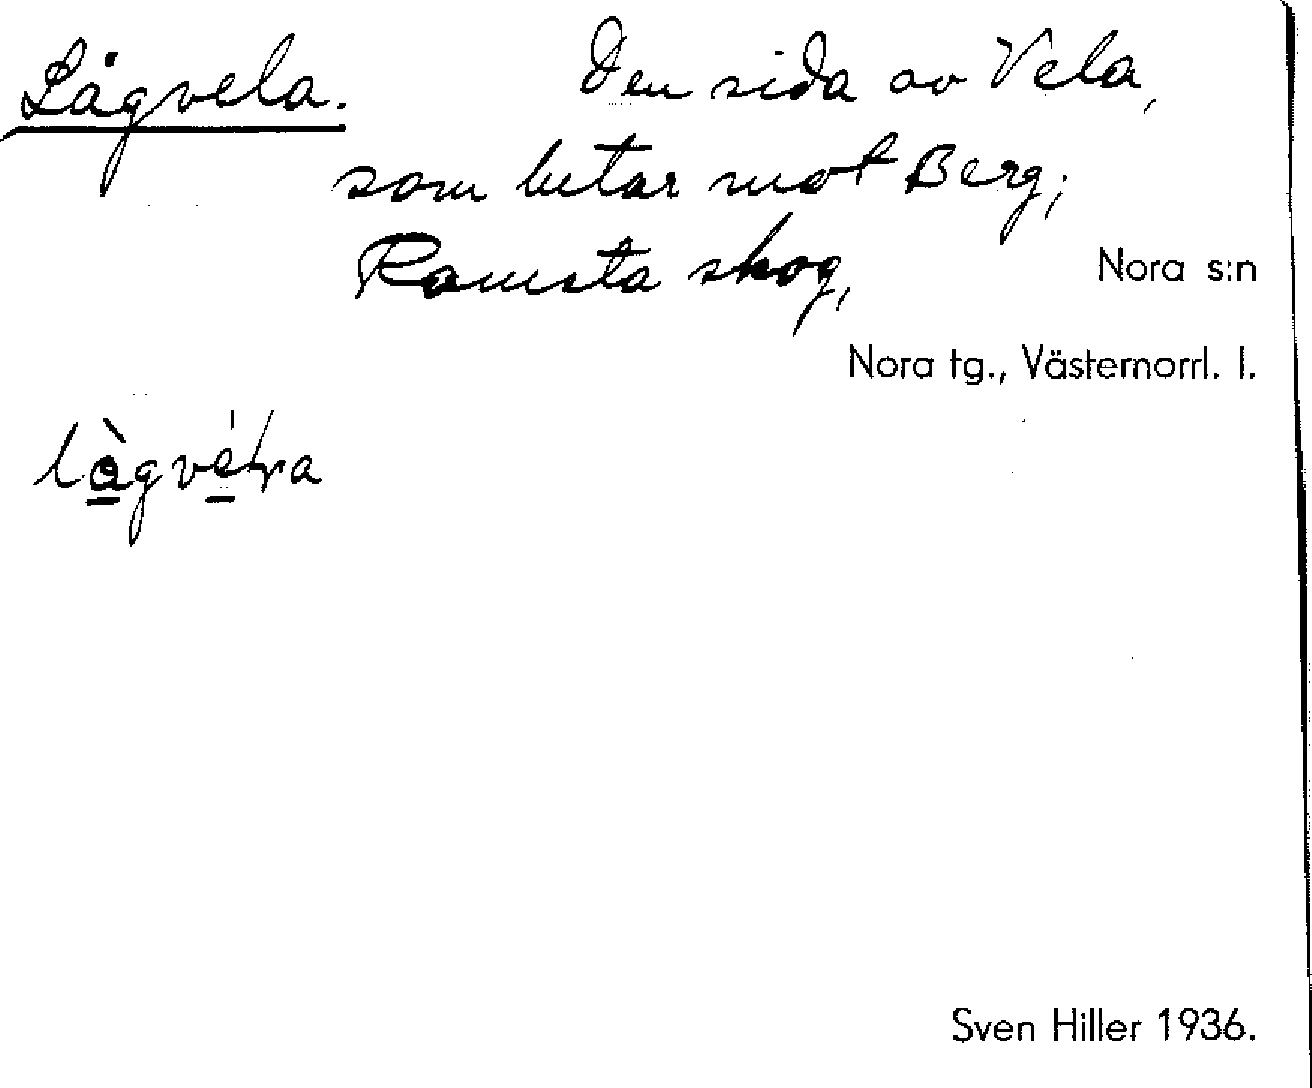 Lågvela. Den sida av Vela,
som lutar mot Berg;
Ramsta skog,
Nora s:n
Nora tg., Västernorrl. l.
Sven Hiller 1936.